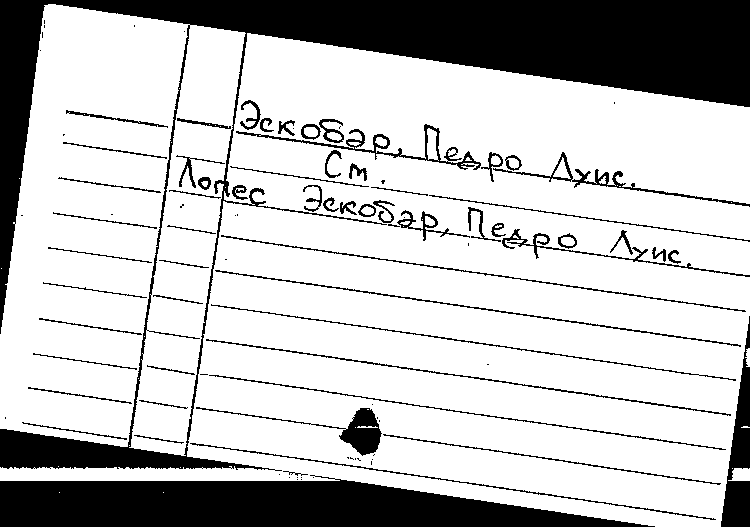 Эскобэр, Педро Луис.
См.
Лопес Эскобэр, Педро Луис.